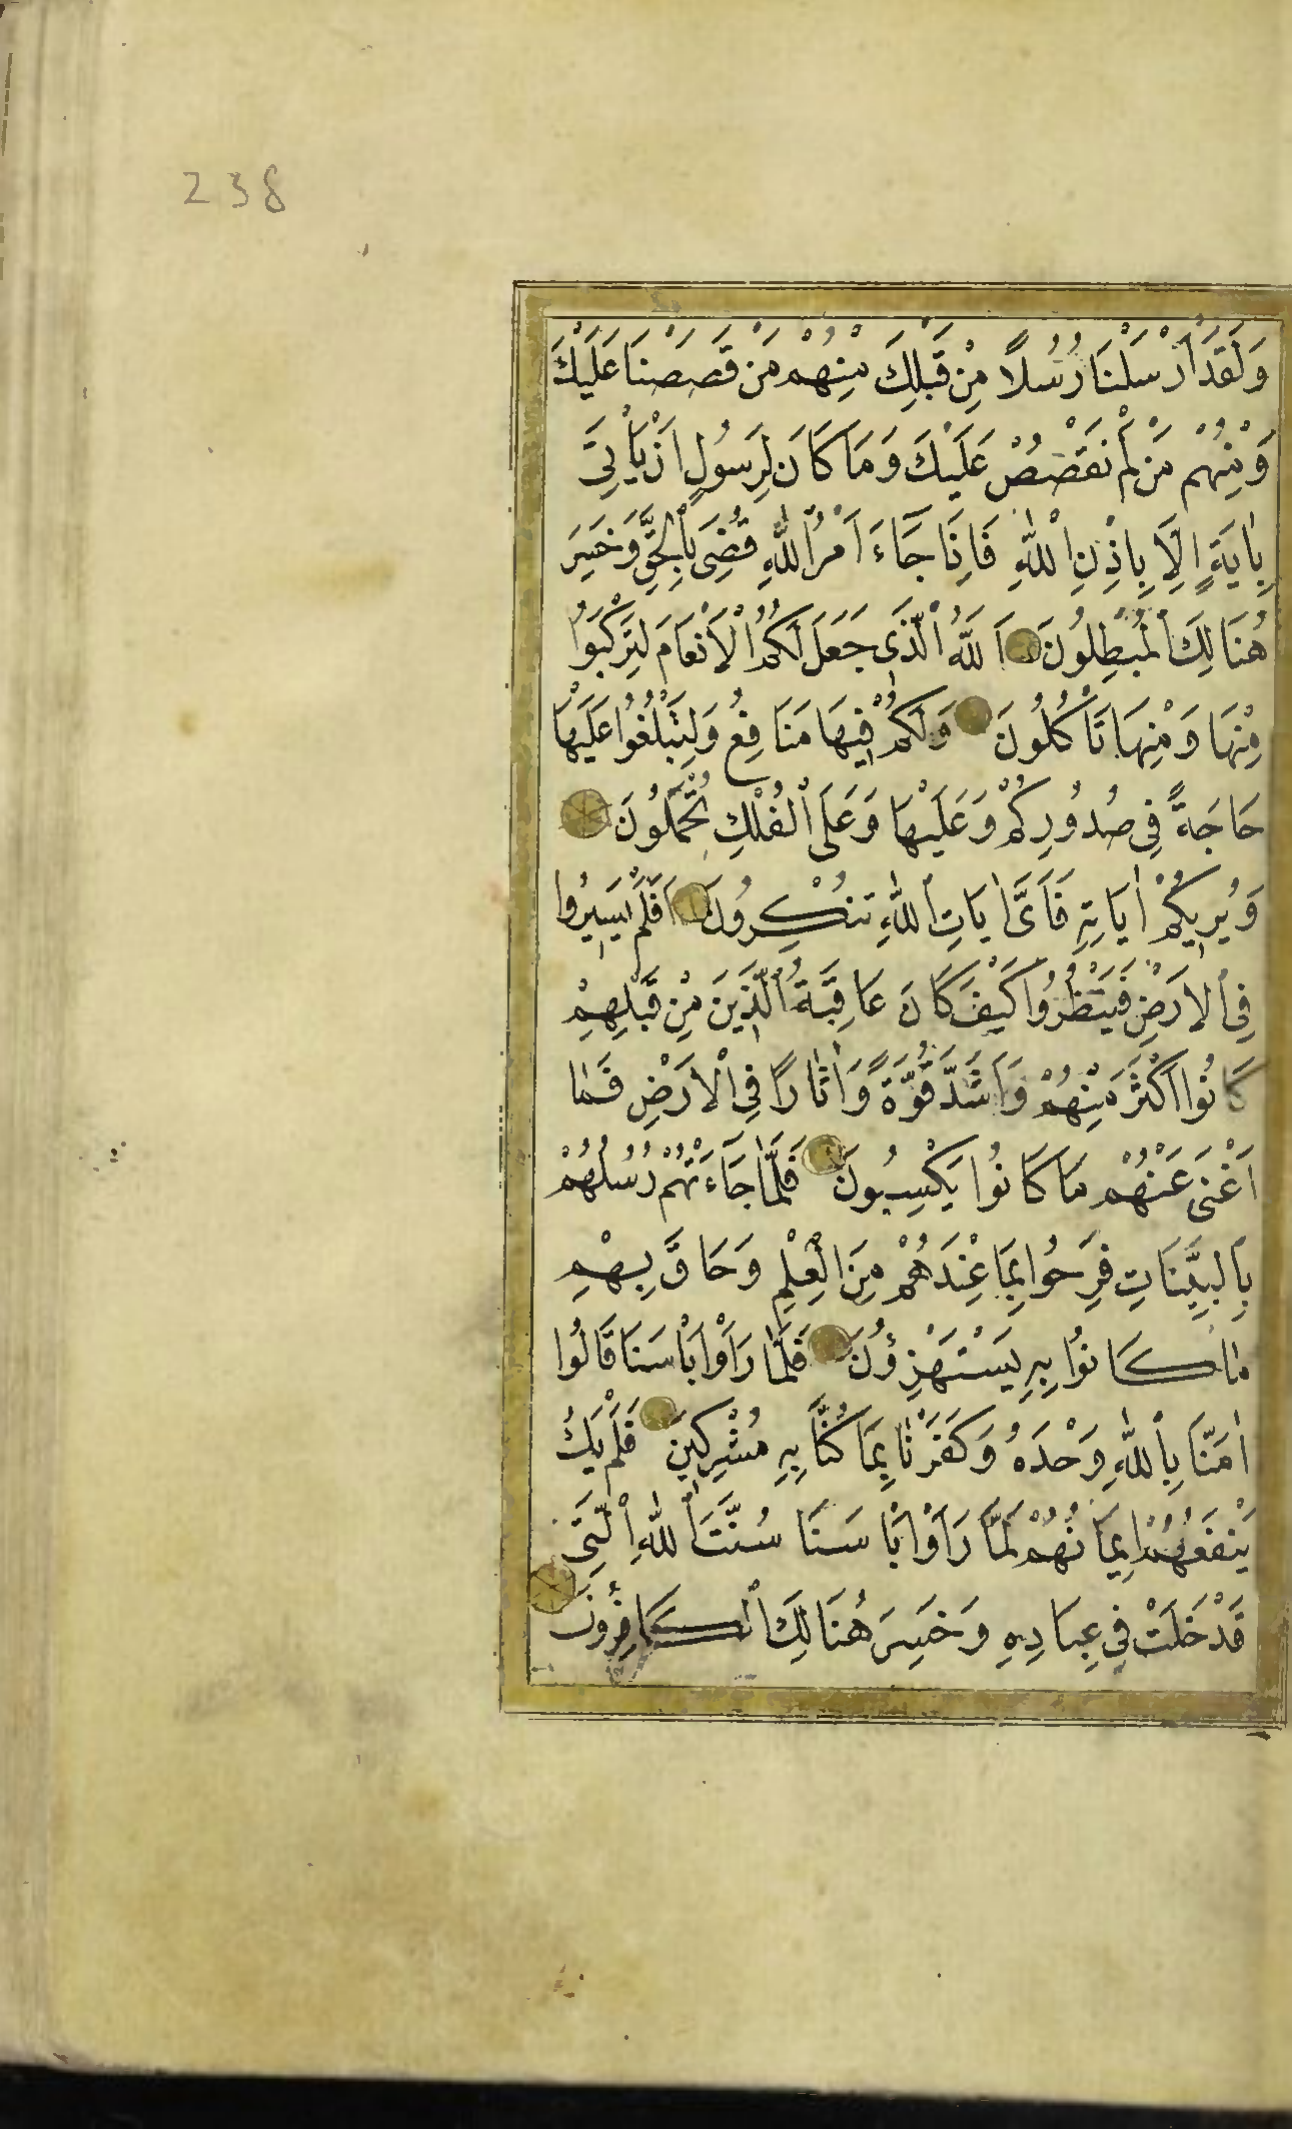 238
وَلَقَدْ اَرْسَلْنَا رُسُلًا مِنْ قَبْلِكَ مِنْهُمْ مَنْ قَصَصْنَا عَلَيْكَ
وَمِنْهُمْ مَنْ لَمْ نَقْصُصْ عَلَيْكَ وَمَا كَانَ لِرَسُولٍ اَنْ يَأْتِىَ
بِاٰيَةٍ اِلَّا بِاِذْنِ اللّٰهِ فَاِذَا جَاءَ اَمْرُ اللّٰهِ قُضِىَ بِالْحَقِّ وَخَسِرَ
هُنَالِكَ الْمُبْطِلُونَ اَللّٰهُ الَّذِى جَعَلَ لَكُمُ الْاَنْعَامَ لِتَرْكَبُوا
مِنْهَا وَمِنْهَا تَأْكُلُونَ وَلَكُمْ فِيهَا مَنَافِعُ وَلِتَبْلُغُوا عَلَيْهَا
حَاجَةً فِى صُدُورِكُمْ وَعَلَيْهَا وَعَلَى الْفُلْكِ تُحْمَلُونَ
وَيُرِيكُمْ اٰيَاتِهِ فَاَىَّ اٰيَاتِ اللّٰهِ تُنْكِرُونَ اَفَلَمْ يَسِيرُوا
فِى الْاَرْضِ فَيَنْظُرُوا كَيْفَ كَانَ عَاقِبَةُ الَّذِينَ مِنْ قَبْلِهِمْ
كَانُوا اَكْثَرَ مِنْهُمْ وَاَشَدَّ قُوَّةً وَاٰثَارًا فِى الْاَرْضِ فَمَا
اَغْنٰى عَنْهُمْ مَا كَانُوا يَكْسِبُونَ فَلَمَّا جَاءَتْهُمْ رُسُلُهُمْ
بِالْبَيِّنَاتِ فَرِحُوا بِمَا عِنْدَهُمْ مِنَ الْعِلْمِ وَحَاقَ بِهِمْ
مَا كَانُوا بِهِ يَسْتَهْزِؤُنَ فَلَمَّا رَاَوْا بَأْسَنَا قَالُوا
اٰمَنَّا بِاللّٰهِ وَحْدَهُ وَكَفَرْنَا بِمَا كُنَّا بِهِ مُشْرِكِينَ فَلَمْ يَكُ
يَنْفَعُهُمْ اِيمَانُهُمْ لَمَّا رَاَوْا بَأْسَنَا سُنَّتَ اللّٰهِ الَّتِى
قَدْ خَلَتْ فِى عِبَادِهِ وَخَسِرَ هُنَالِكَ الْكَافِرُونَ